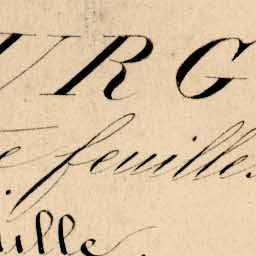 URG
e feuilles
uille.